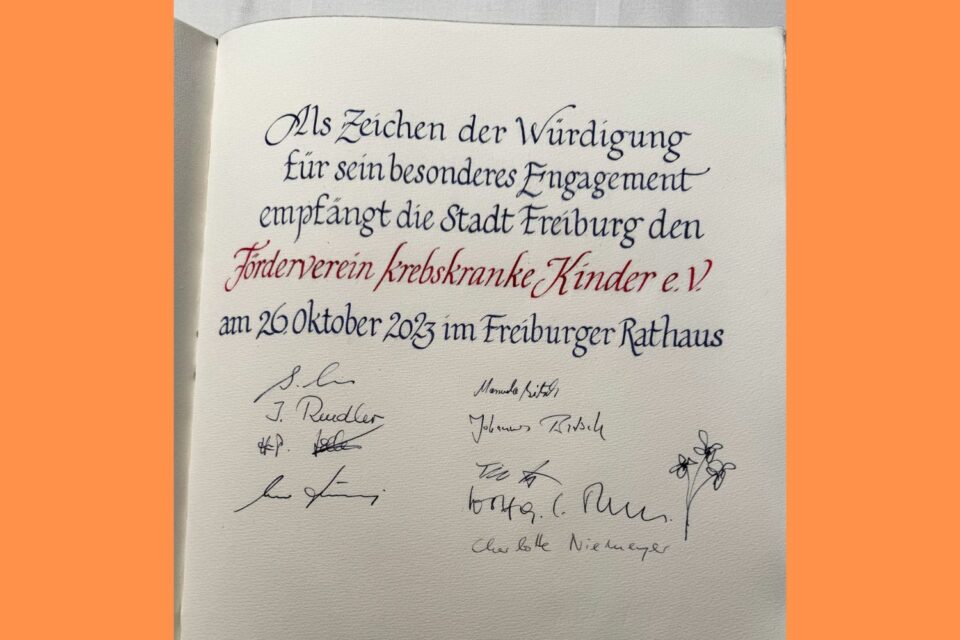 Als Zeichen der Würdigung
für sein besonderes Engagement
empfängt die Stadt Freiburg den
Förderverein krebskranke Kinder e.V.
am 26. Oktober 2023 im Freiburger Rathaus
S.
J. Rendler
H.P.
Johannes Bitsch
Charlotte Niemeyer